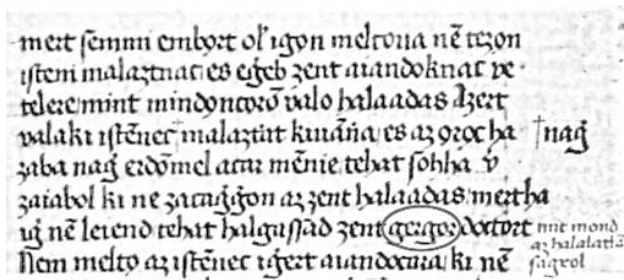 mert ſemmi embort ol' igon meltoua nē tezon
iſteni malaztnac: es eǵeb zent aiandoknac ve
telere: mint mindoncorō valo halaadas Azert
valaki iſtēnec †malaztat kiuāńa, es az 9roc ha †naǵ
zaba naǵ erdōmel acar mēnie: tehat ſohha v
zaiabol ki ne zacaǵǵon az zent halaadas: mertha
iǵ nē leiend tehat halgaſſad zent gergor doctort mit mond
Nem melto az iſtēnec iǵert aiandocira, ki nē az halalatlā
ſagrol